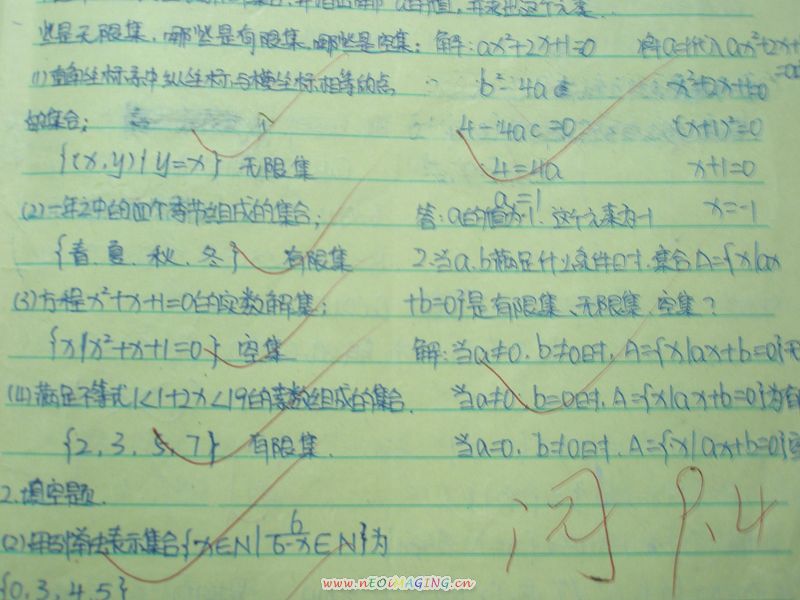 些是无限集,哪些是有限集,哪些是空集:
(1)直角坐标系中纵坐标与横坐标相等的点
的集合;
{(x,y)|y=x} 无限集
(2)一年之中的四个季节组成的集合;
{春、夏、秋、冬} 有限集
(3)方程x²+x+1=0的实数解集;
{x|x²+x+1=0} 空集
(4)满足不等式1<1+2x<19的素数组成的集合.
{2,3,5,7} 有限集.
2.填空题.
(2)用列举法表示集合{x∈N|6/6-x∈N}为
{0,3,4,5}
的值,并求出这个元素.
解:ax²+2x+1=0 将a=1代入ax²+2x+1
=0
b²-4ac x²+2x+1=0
4-4ac=0 (x+1)²=0
4=4a x+1=0
a=1 x=-1
答:a的值为1.这个元素为-1
2.当a、b满足什么条件时,集合A={x|ax
+b=0}是有限集、无限集、空集?
解:当a≠0,b≠0时,A={x|ax+b=0}
当a≠0,b=0时,A={x|ax+b=0}为有
当a=0,b≠0时,A={x|ax+b=0}
阅 9.4
www.nEOiMAGING.cn